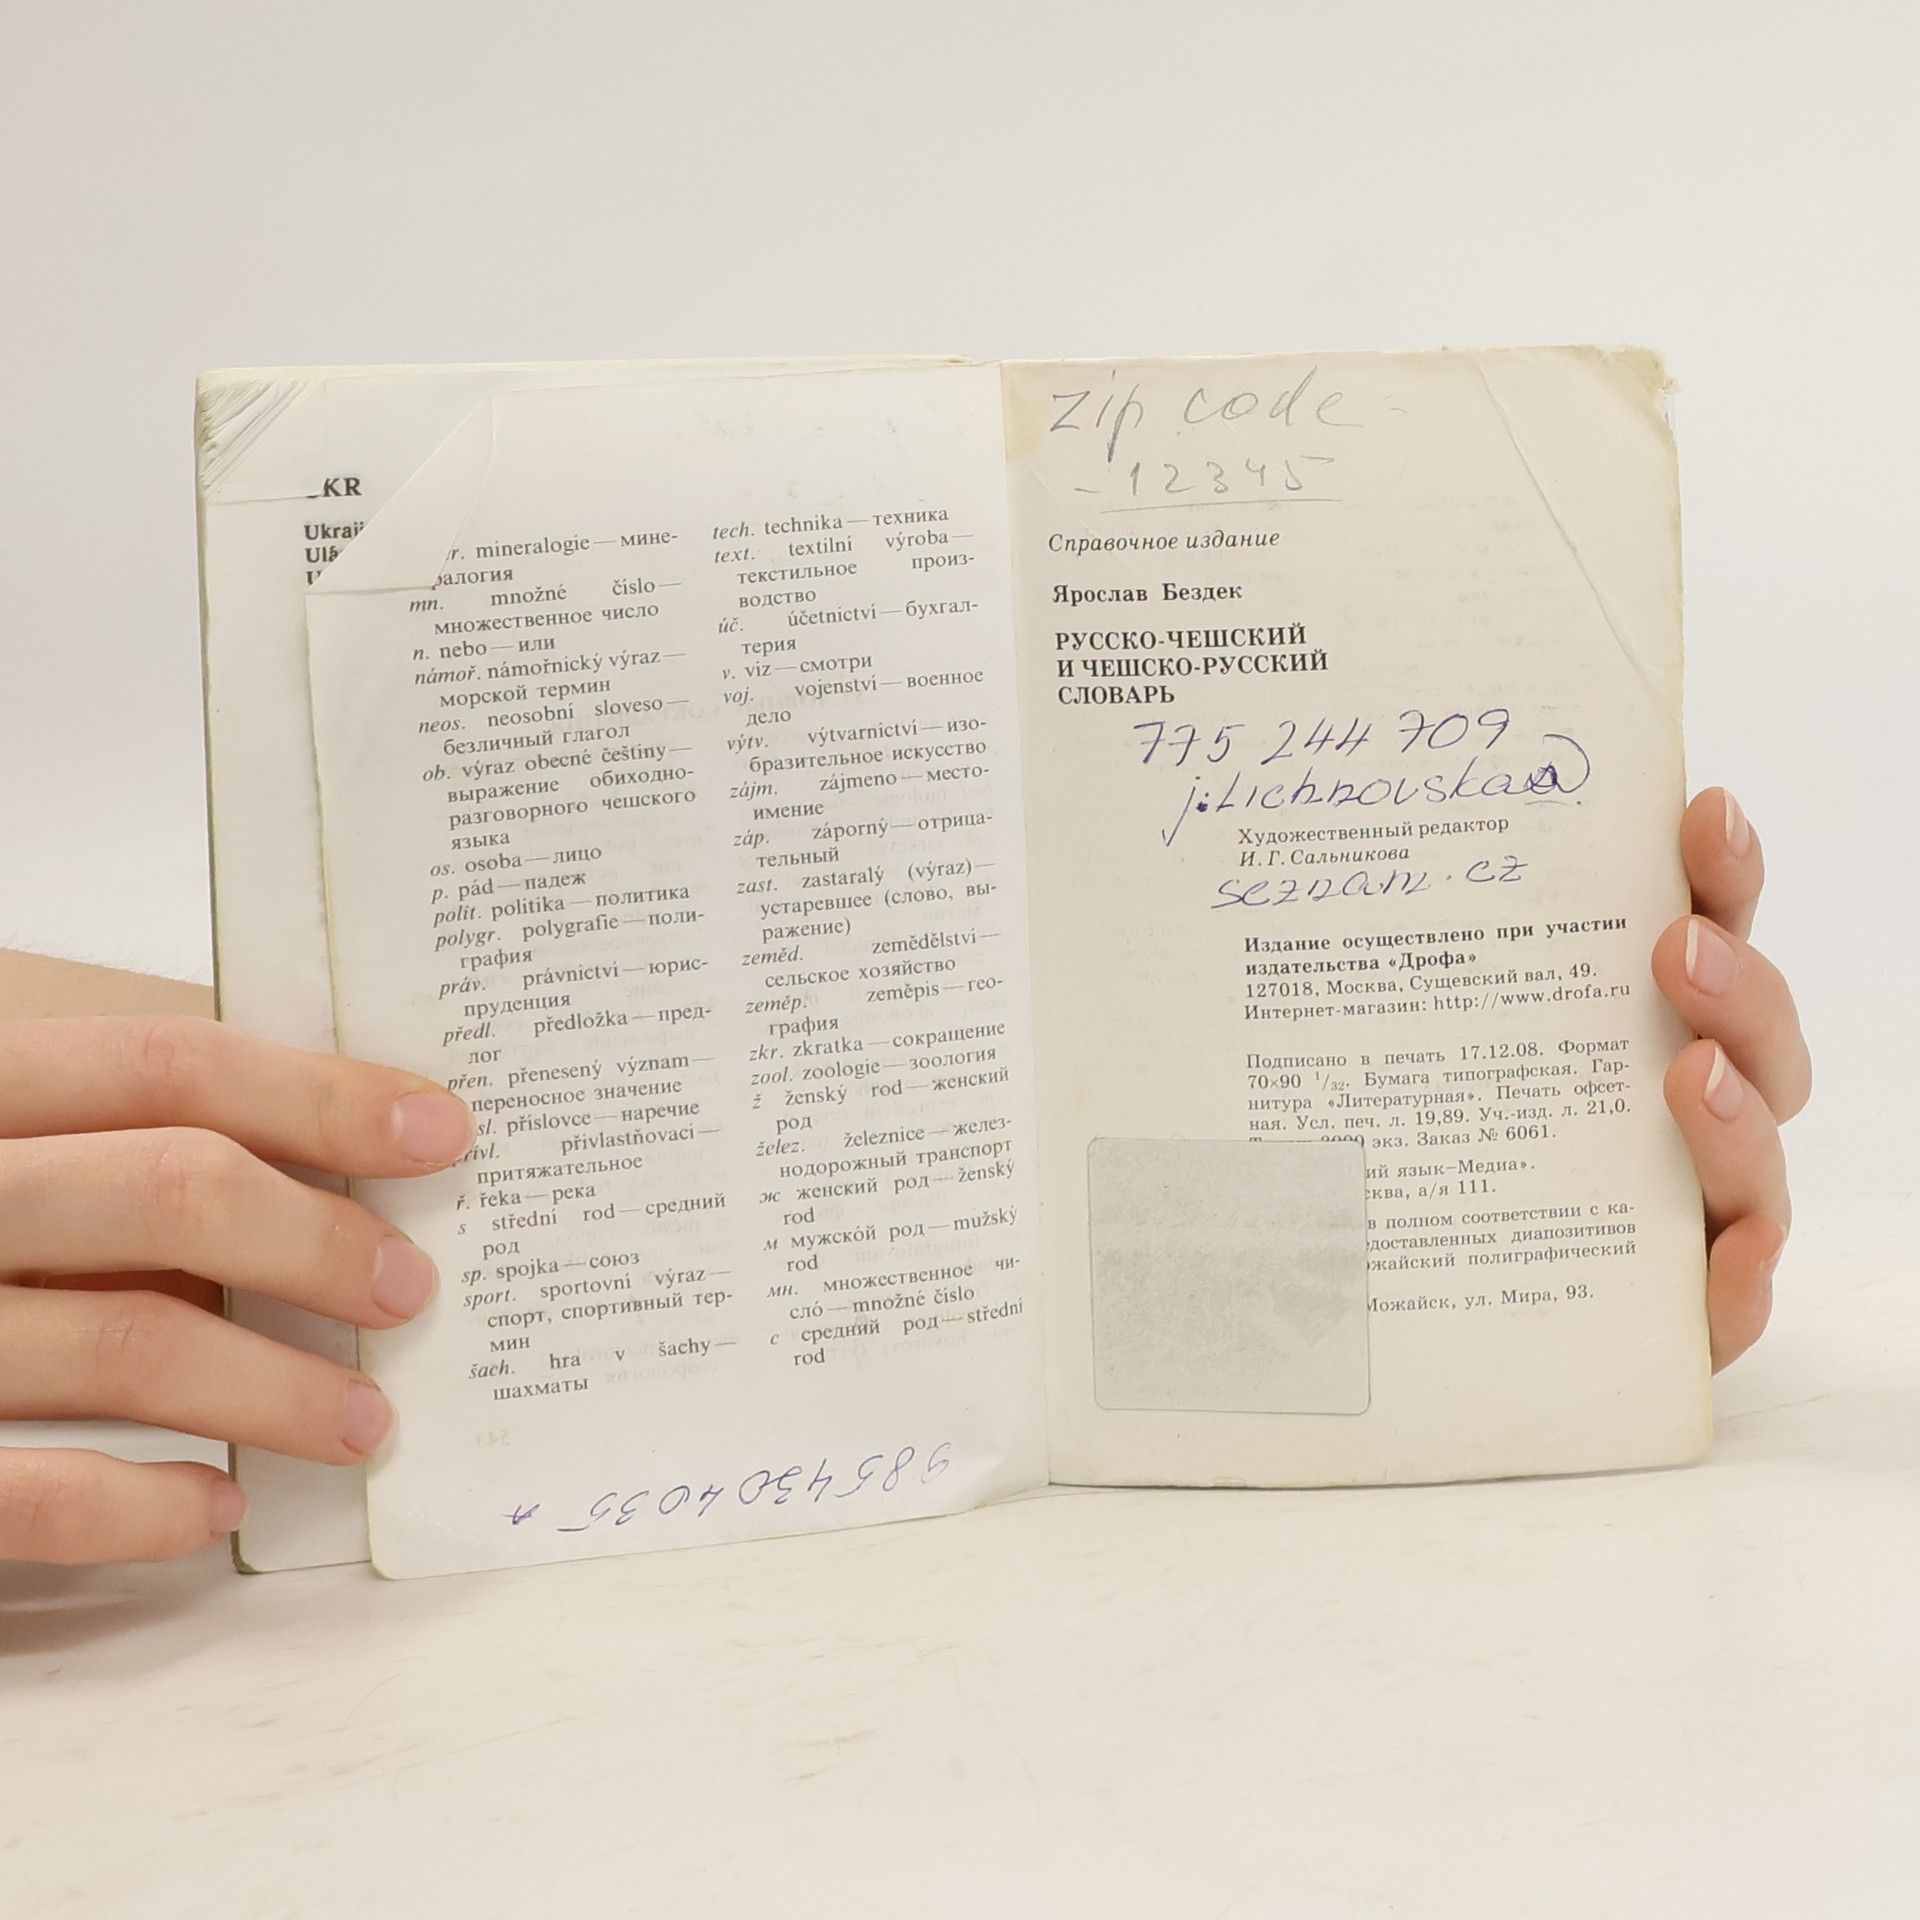 KR
Ukraji
mineralogie — мине-
ралогия
mn. množné číslo —
множественное число
n. nebo — или
námoř. námořnický výraz —
морской термин
neos. neosobní sloveso —
безличный глагол
ob. výraz obecné češtiny —
выражение обиходно-
разговорного чешского
языка
os. osoba — лицо
p. pád — падеж
polit. politika — политика
polygr. polygrafie — поли-
графия
práv. právnictví — юрис-
пруденция
předl. předložka — пред-
лог
přen. přenesený význam —
переносное значение
sl. příslovce — наречие
přivl. přivlastňovací —
притяжательное
ř. řeka — река
s střední rod — средний
род
sp. spojka — союз
sport. sportovní výraz —
спорт, спортивный тер-
мин
šach. hra v šachy —
шахматы
tech. technika — техника
text. textilní výroba —
текстильное произ-
водство
úč. účetnictví — бухгал-
терия
v. viz — смотри
voj. vojenství — военное
дело
výtv. výtvarnictví — изо-
бразительное искусство
zájm. zájmeno — место-
имение
záp. záporný — отрица-
тельный
zast. zastaralý (výraz) —
устаревшее (слово, вы-
ражение)
zeměd. zemědělství —
сельское хозяйство
zeměp. zeměpis — гео-
графия
zkr. zkratka — сокращение
zool. zoologie — зоология
ž ženský rod — женский
род
želez. železnice — желез-
нодорожный транспорт
ж женский род — ženský
rod
м мужской род — mužský
rod
мн. множественное чи-
сло́ — množné číslo
с средний род — střední
rod
9854304035
zip code -
- 12345
Справочное издание
Ярослав Бездек
РУССКО-ЧЕШСКИЙ
И ЧЕШСКО-РУССКИЙ
СЛОВАРЬ
775 244 709
j.Lichnovska@
Художественный редактор
И. Г. Сальникова
seznam.cz
Издание осуществлено при участии
издательства «Дрофа»
127018, Москва, Сущевский вал, 49.
Интернет-магазин: http://www.drofa.ru
Подписано в печать 17.12.08. Формат
70×90 1/32. Бумага типографская. Гар-
нитура «Литературная». Печать офсет-
ная. Усл. печ. л. 19,89. Уч.-изд. л. 21,0.
экз. Заказ № 6061.
ий язык–Медиа».
сква, а/я 111.
в полном соответствии с ка-
едоставленных диапозитивов
ожайский полиграфический
Можайск, ул. Мира, 93.